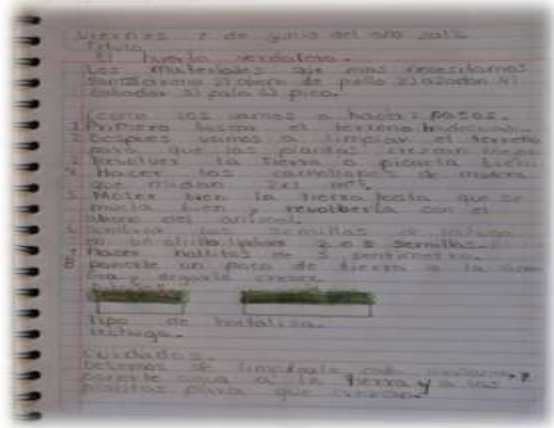 Viernes 2 de junio del año
Titulo
El huerto
Los materiales que mas necesitamos
2) abono de pollo 3) azadon 4)
5) pala 6) pico.
como los vamos a hacer? pasos.
1 Primero buscar el terreno
2 Despues vamos a limpiar el terreno
para que las plantas crezcan
3 Revolver la tierra o picarla bien
4 Hacer los camellones de madera
que midan 2x1 mt.
5 Moler bien la tierra hasta que se
bien y revolberla con el
abono del animal.
6 las semillas de lechuga
en un 2 o 3 semillas.
7 Hacer hollitos de 5 sentimetro.
8 ponerle un poco de tierra a la
y dejarla crecer.
Tipo de hortaliza.
lechuga.
Cuidados.
Debemos de limpiarla y
ponerle agua a la tierra y a las
plantas para que crezcan.